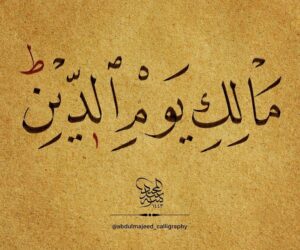 مَالِكِ يَوْمِ ٱلدِّينِ ط
١٤٤٣
@abdulmajeed_calligraphy